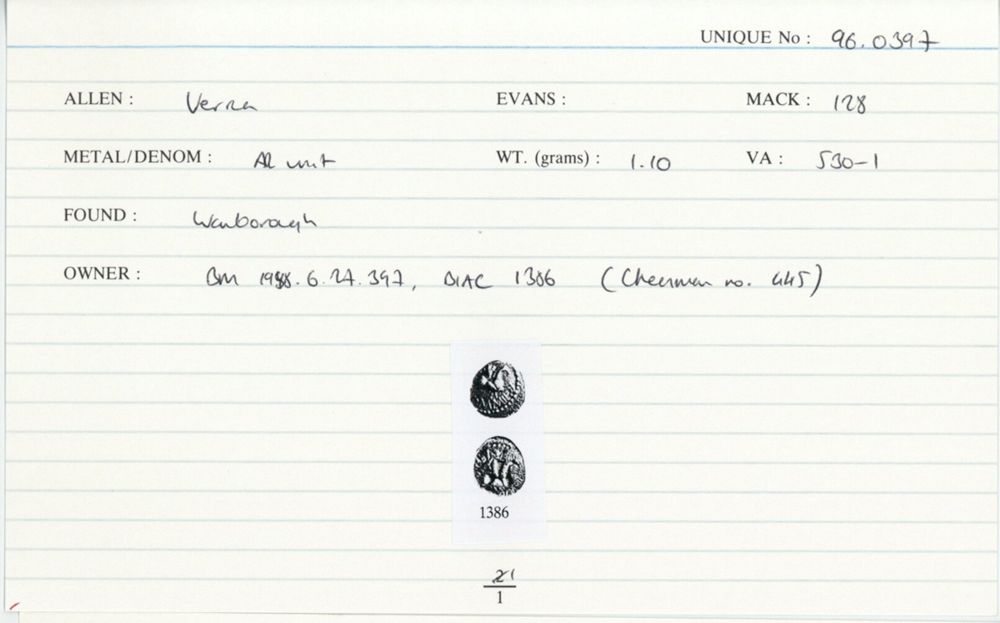 UNIQUE No : 96.0397
ALLEN : Verica EVANS : MACK : 128
METAL/DENOM : AR unit WT. (grams) : 1.10 VA : 530-1
FOUND : Wanborough
OWNER : BM 1988.6.27.397, BMC 1386 (Cheesman no. 445)
1386
21
1